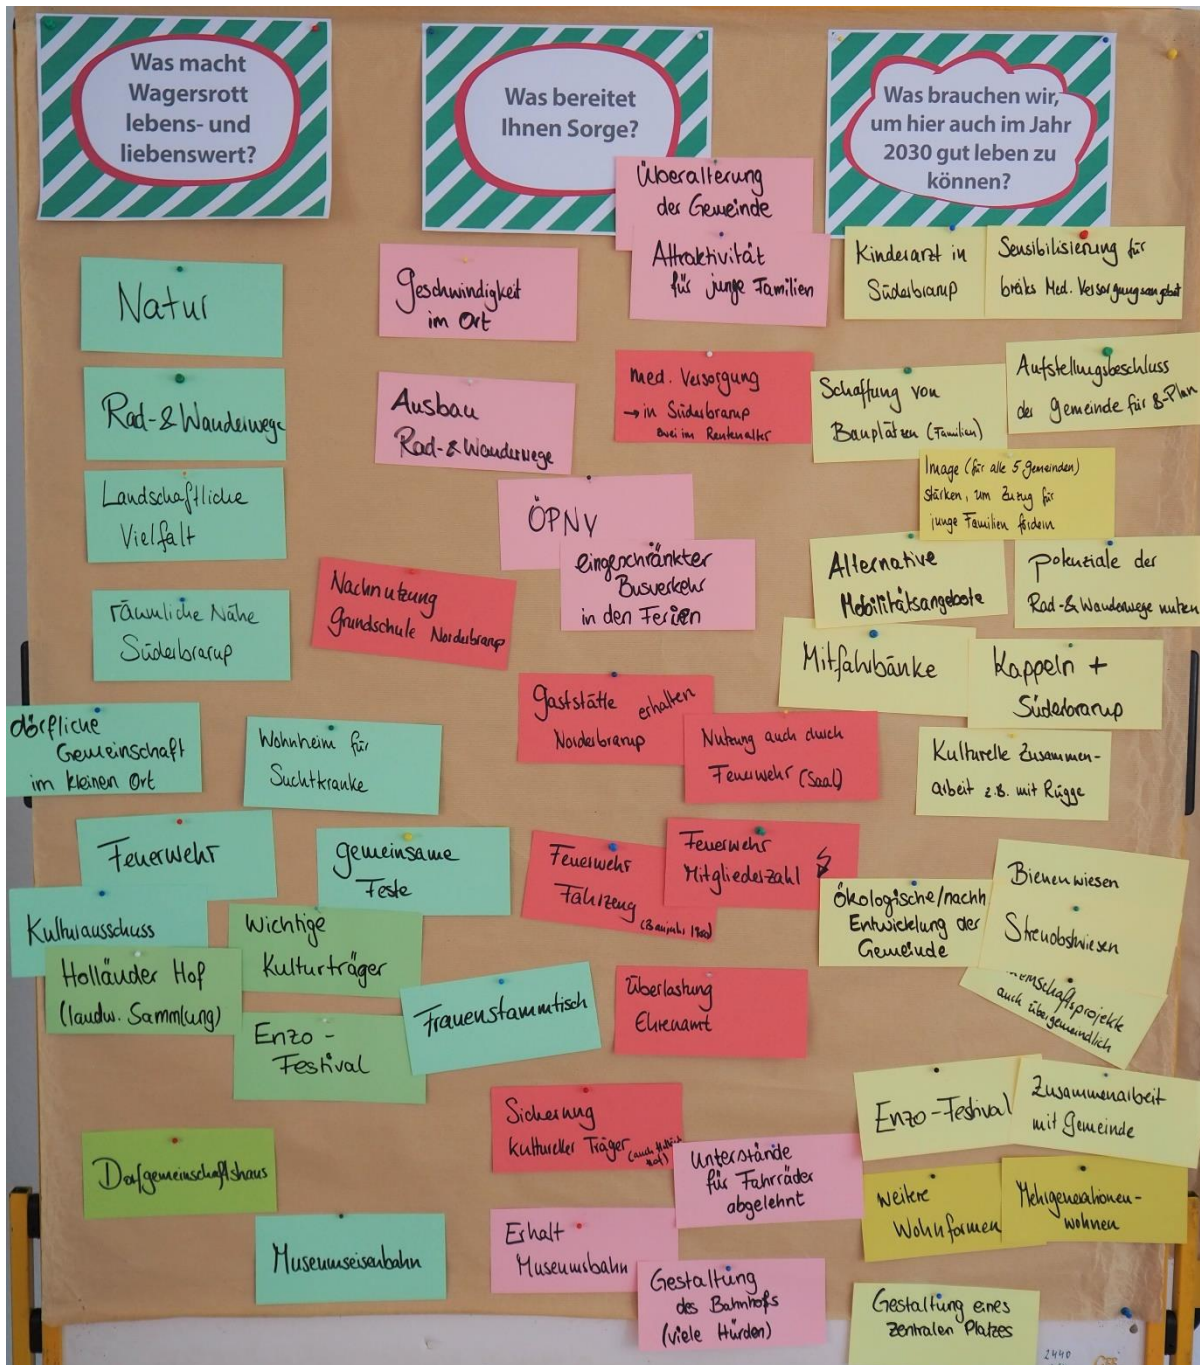 Was macht
Wagersrott
lebens- und
liebenswert?
Natur
Rad- & Wanderwege
Landschaftliche
Vielfalt
räumliche Nähe
Süderbrarup
dörfliche
Gemeinschaft
im kleinen Ort
Wohnheim für
Suchtkranke
Feuerwehr
gemeinsame
Feste
Kulturausschuss
Wichtige
Kulturträger
Holländer Hof
(landw. Sammlung)
Enzo -
Festival
Frauenstammtisch
Dorfgemeinschaftshaus
Museumseisenbahn
Was bereitet
Ihnen Sorge?
Überalterung
der Gemeinde
Attraktivität
für junge Familien
Geschwindigkeit
im Ort
Ausbau
Rad- & Wanderwege
med. Versorgung
→ in Süderbrarup
zwei im Rentenalter
ÖPNV
eingeschränkter
Busverkehr
in den Ferien
Nachnutzung
Grundschule Norderbrarup
Gaststätte erhalten
Norderbrarup
Nutzung auch durch
Feuerwehr (Saal)
Feuerwehr
Fahrzeug
(Baujahr
Feuerwehr
Mitgliederzahl
Überlastung
Ehrenamt
Sicherung
kultureller Träger (auch
Unterstände
für Fahrräder
abgelehnt
Erhalt
Museumsbahn
Gestaltung
des Bahnhofs
(viele Hürden)
Was brauchen wir,
um hier auch im Jahr
2030 gut leben zu
können?
Kinderarzt in
Süderbrarup
Sensibilisierung für
Med. Versorgungsangebot
Schaffung von
Bauplätzen (Familien)
Aufstellungsbeschluss
der Gemeinde für B-Plan
Image (für alle 5 Gemeinden)
stärken, um Zuzug für
junge Familien fördern
Alternative
Mobilitätsangebote
Potenziale der
Rad- & Wanderwege nutzen
Mitfahrbänke
Kappeln +
Süderbrarup
Kulturelle Zusammen-
arbeit z.B. mit Rügge
Ökologische/nachh
Entwicklung der
Gemeinde
Bienenwiesen
Streuobstwiesen
emschaftsprojekte
auch übergemeindlich
Enzo-Festival
Zusammenarbeit
mit Gemeinde
weitere
Wohnformen
Mehrgenerationen-
wohnen
Gestaltung eines
zentralen Platzes
2440